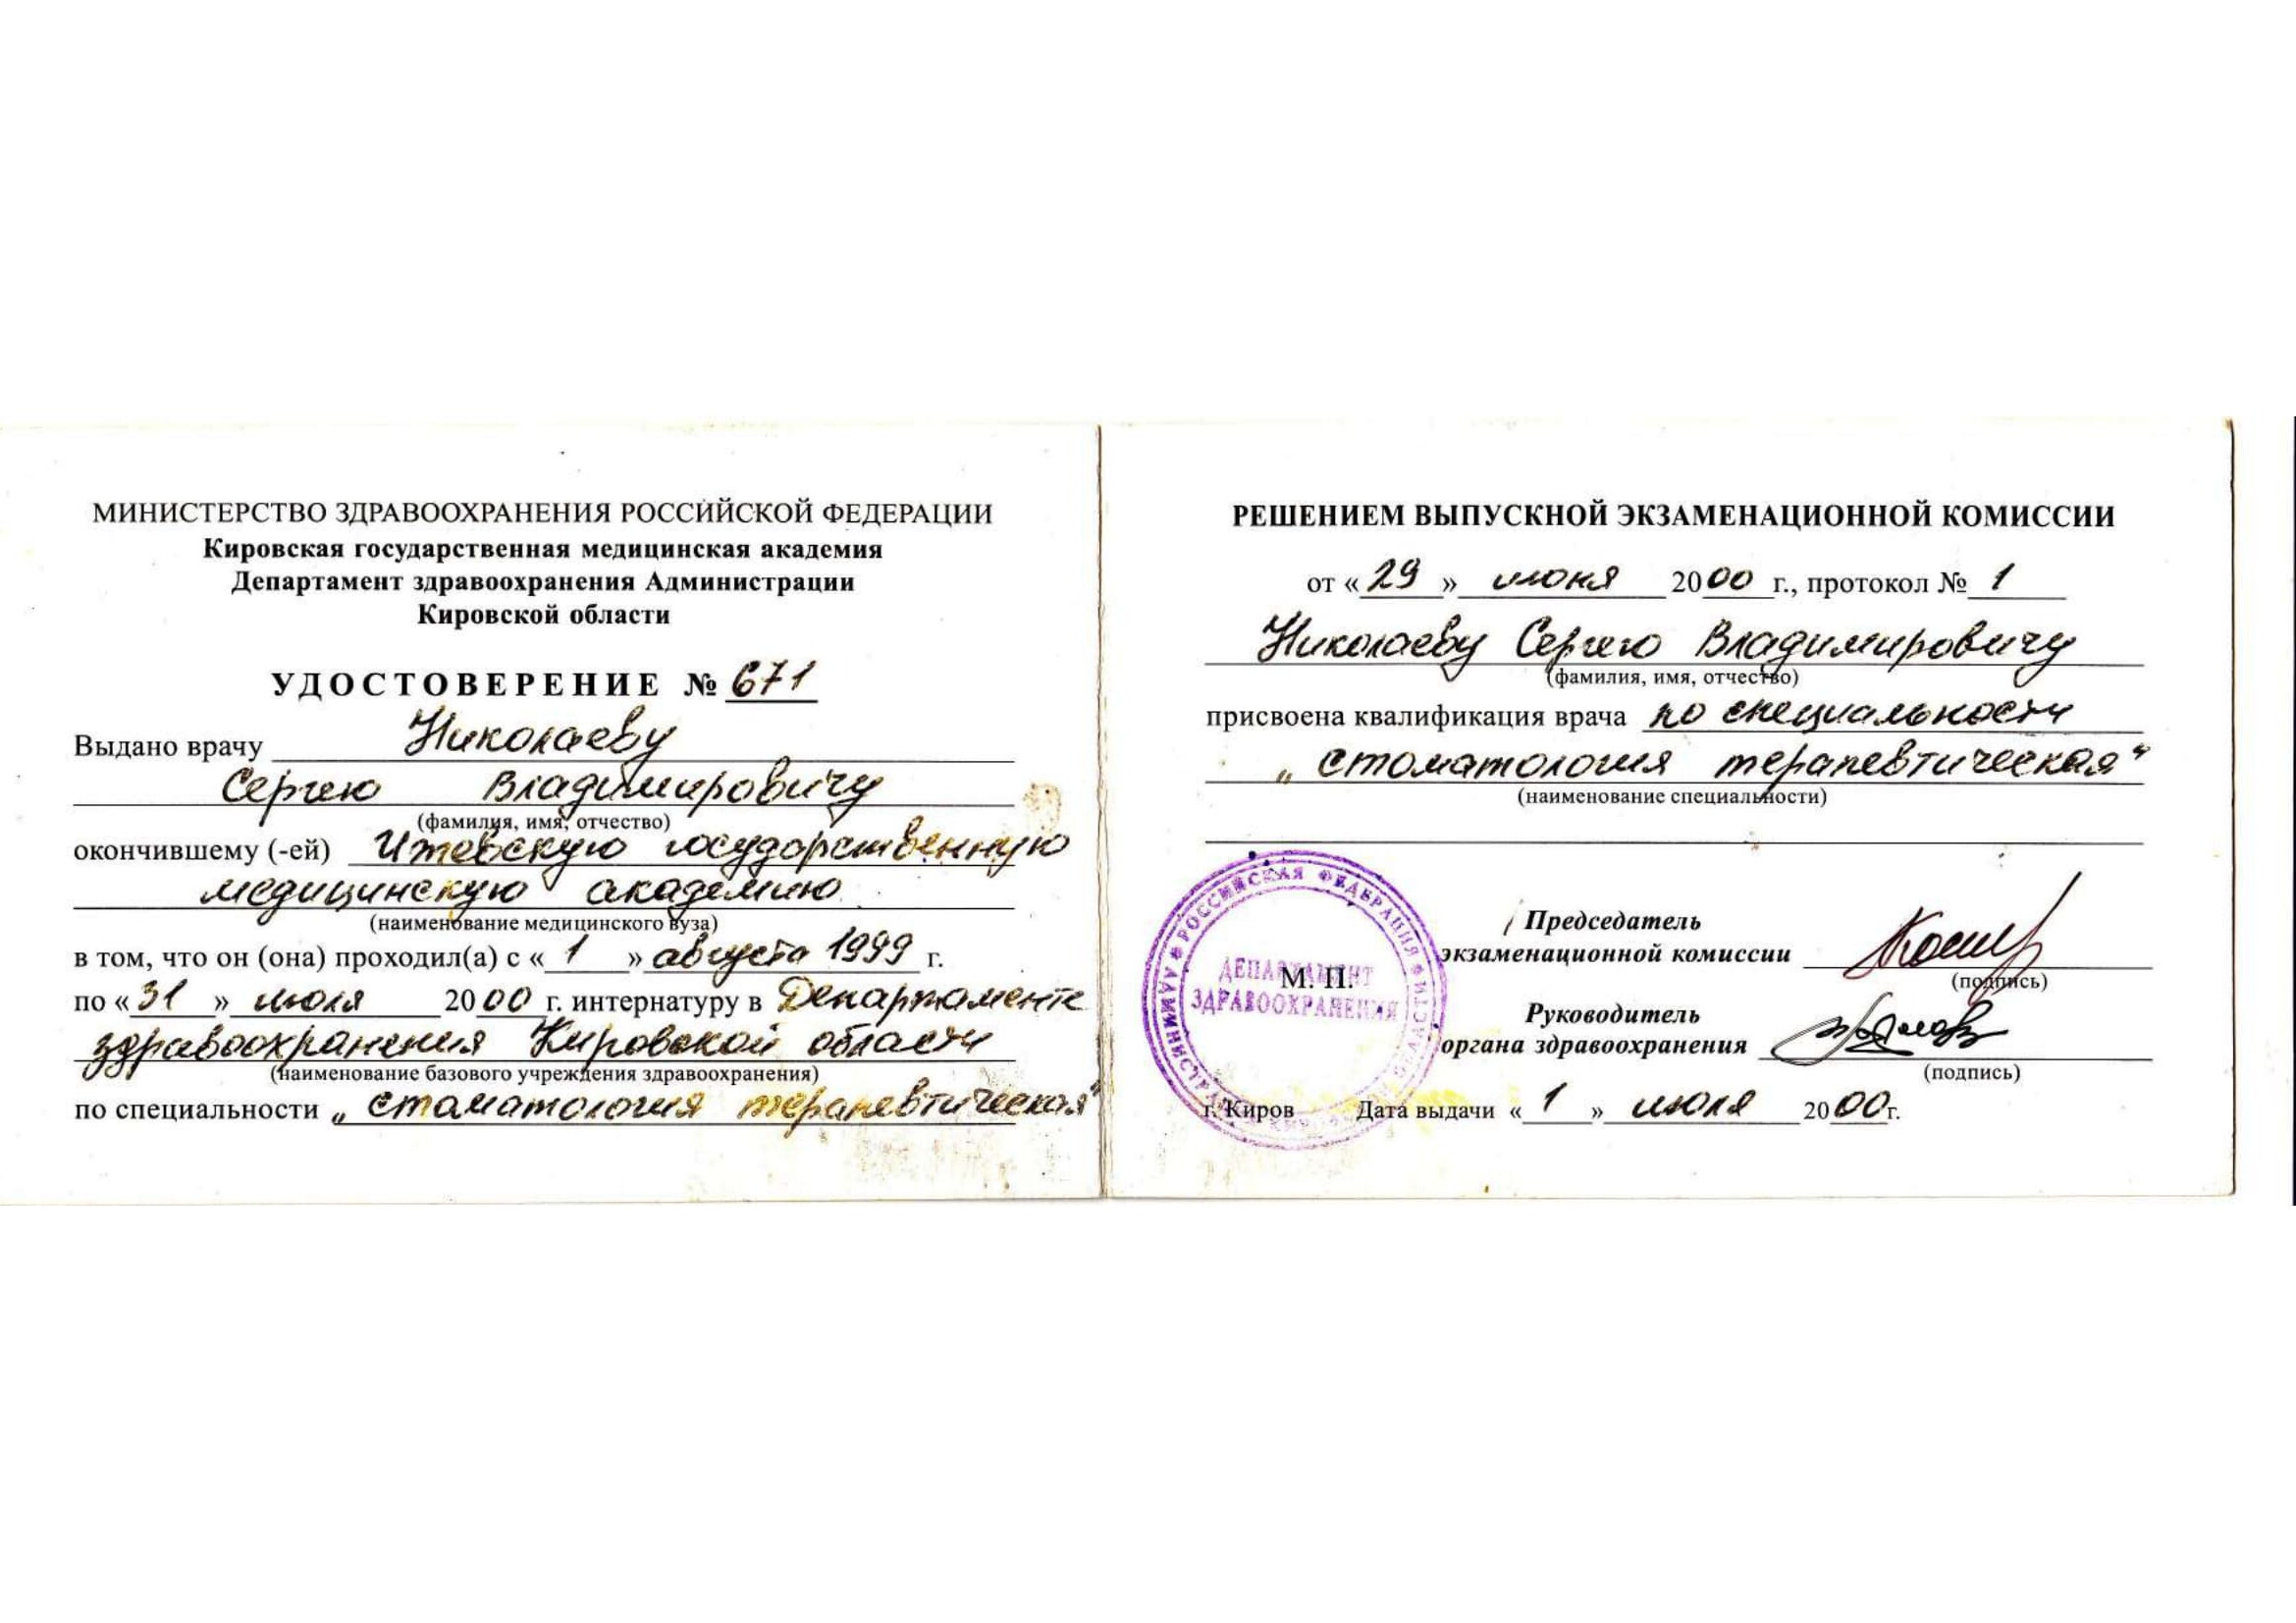 МИНИСТЕРСТВО ЗДРАВООХРАНЕНИЯ РОССИЙСКОЙ ФЕДЕРАЦИИ
Кировская государственная медицинская академия
Департамент здравоохранения Администрации
Кировской области
УДОСТОВЕРЕНИЕ № 671
Выдано врачу Николаеву
Сергею Владимировичу
(фамилия, имя, отчество)
окончившему (-ей) Ижевскую государственную
медицинскую академию
(наименование медицинского вуза)
в том, что он (она) проходил(а) с « 1 » августа 1999 г.
по « 31 » июля 2000 г. интернатуру в Департаменте
здравоохранения Кировской области
(наименование базового учреждения здравоохранения)
по специальности „ стоматология терапевтическая"
РЕШЕНИЕМ ВЫПУСКНОЙ ЭКЗАМЕНАЦИОННОЙ КОМИССИИ
от « 29 » июня 2000 г., протокол № 1
Николаеву Сергею Владимировичу
(фамилия, имя, отчество)
присвоена квалификация врача по специальности
„ стоматология терапевтическая"
(наименование специальности)
РОССИЙСКАЯ ФЕДЕРАЦИЯ
ДЕПАРТАМЕНТ
ЗДРАВООХРАНЕНИЯ
М. П.
Председатель
экзаменационной комиссии
(подпись)
Руководитель
органа здравоохранения
(подпись)
г. Киров Дата выдачи « 1 » июля 2000г.